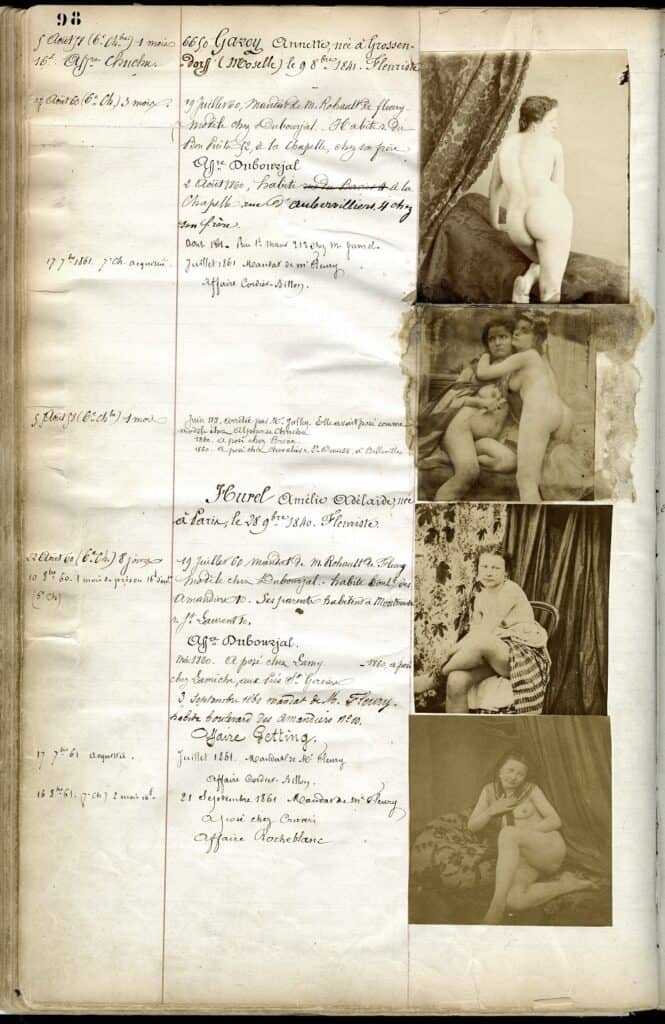 98
5 Août 58 (6e Chbre) 1 mois
16f. Affre Chuchu
6650 Gavoy Annette, née à Grossen-
-dorff (Moselle) le 9 8bre 1841. Fleuriste
Août 60 (6e Ch) 3 mois.
19 Juillet 60, Mandat de M. Rohault de fleury
Modèle chez Dubourjal. Habite Rue
Bon Puits 52, à la Chapelle, chez son frère
Affre Dubourjal
2 Août 1860, habite à la
Chapelle rue d'aubervilliers 4 chez
son frère.
Août 1861. Rue St Maur 212 chez M.
17 7bre 1861. 7e Ch. acquittée.
Juillet 1861 Mandat de Mr Fleury
Affaire Cordier-Billon.
5 Août 58 (6e Chbre) 1 mois
Juin arrêtée par Mr. Elle avait posé comme
modèle chez Alphonse Chuchu
1860. a posé chez
1860. a posé chez à Belleville
Hurel Amélie Adélaïde, née
à Paris, le 28 9bre 1840. Fleuriste.
2 Août 60 (6e Ch) 8 jours
19 Juillet 60 mandat de M. Rohault de Fleury
10 8bre 60. 1 mois de prison 16f
Modèle chez Dubourjal. habite boulv. des
(6e Ch)
Amandiers 10. Ses parents habitent à Montmartre
r. St. Laurent 10.
Affre Dubourjal.
1860. A posé chez Lamy 1860, a posé
chez Lamiche, aux
3 Septembre 1860 mandat de M. Fleury.
habite boulevard des amandiers No 10.
Affaire Getting.
17 7bre 61 acquittée.
Juillet 1861. Mandat de Mr Fleury
Affaire Cordier-Billon.
16 8bre 61. (7e Ch) 2 mois 16f.
21 Septembre 1861 Mandat de Mr Fleury
a posé chez
Affaire Rocheblanc